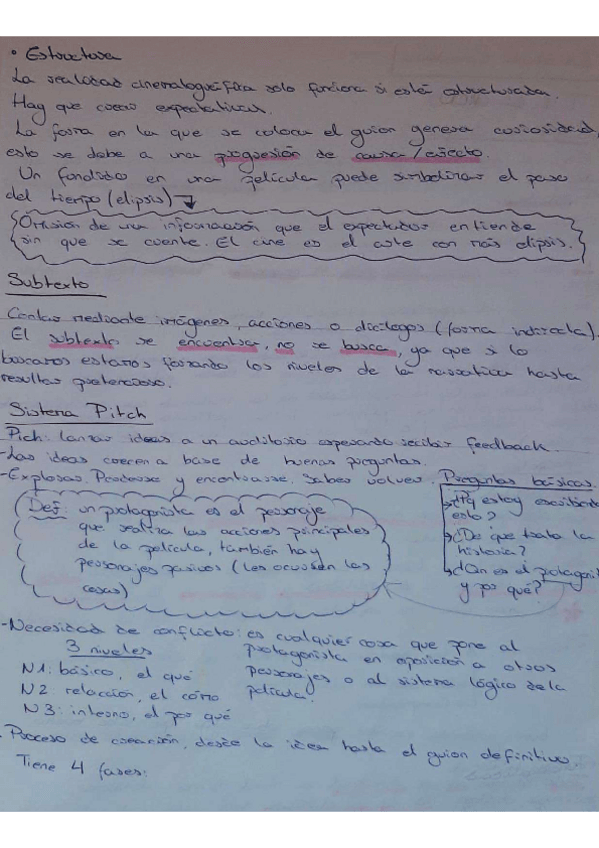 • Estructura
La realidad cinematográfica solo funciona si está estructurada.
Hay que crear expectativas.
La forma en la que se coloca el guion genera curiosidad,
esto se debe a una progresión de causa/efecto.
Un fundido en una película puede simbolizar el paso
del tiempo (elipsis)
Omisión de una información que el espectador entiende
sin que se cuente. El cine es el arte con más elipsis.
Subtexto
Contar mediante imágenes, acciones o diálogos (forma indirecta).
El subtexto se encuentra, no se busca, ya que si lo
buscamos estamos forzando los niveles de la narrativa hasta
resultar pretencioso.
Sistema Pitch
Pich: lanzar ideas a un auditorio esperando recibir feedback.
-Las ideas crecen a base de buenas preguntas.
-Explorar. Perderse y encontrarse. Saber volver.
Preguntas básicas.
¿Pq estoy escribiendo
esto?
¿De que trata la
historia?
¿Quin es el protagonist
y por qué?
Def: un protagonista es el personaje
que realiza las acciones principales
de la película, también hay
personajes pasivos (les ocurren las
cosas)
-Necesidad de conflicto: es cualquier cosa que pone al
protagonista en oposición a otros
personajes o al sistema lógico de la
película.
3 niveles
N1: básico, el qué
N2: relacción, el cómo
N3: interno, el por qué
- Proceso de creación, desde la idea hasta el guion definitivo.
Tiene 4 fases: